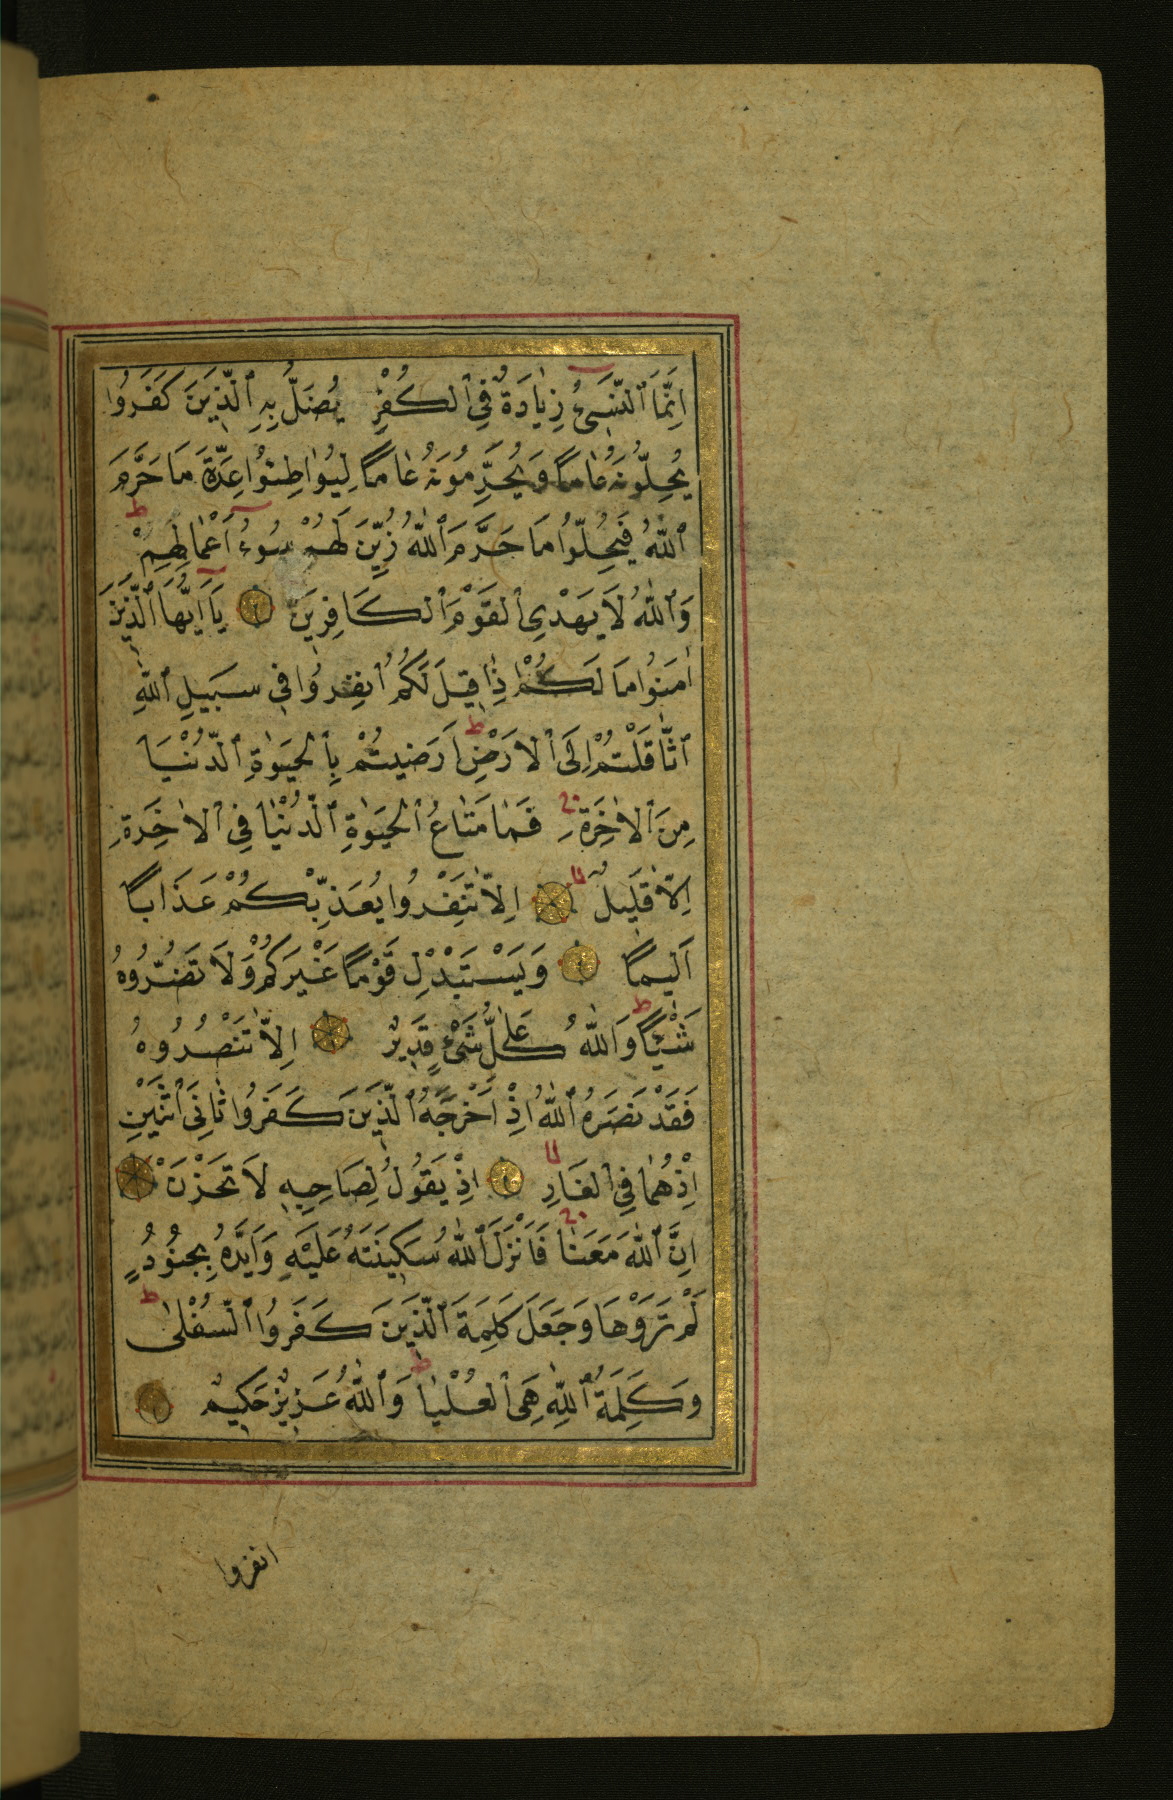 اِنَّمَا ٱلنَّسِىءُ زِيَادَةٌ فِى ٱلْكُفْرِ يُضَلُّ بِهِ ٱلَّذِينَ كَفَرُوا
يُحِلُّونَهُ عَامًا وَيُحَرِّمُونَهُ عَامًا لِيُوَاطِئُوا عِدَّةَ مَا حَرَّمَ
ٱللّٰهُ فَيُحِلُّوا مَا حَرَّمَ ٱللّٰهُ زُيِّنَ لَهُمْ سُوءُ اَعْمَالِهِمْ ط
وَٱللّٰهُ لَا يَهْدِى ٱلْقَوْمَ ٱلْكَافِرِينَ يَا اَيُّهَا ٱلَّذِينَ
اٰمَنُوا مَا لَكُمْ اِذَا قِيلَ لَكُمُ ٱنْفِرُوا فِى سَبِيلِ ٱللّٰهِ
ٱثَّاقَلْتُمْ اِلَى ٱلْاَرْضِ ط اَرَضِيتُمْ بِٱلْحَيٰوةِ ٱلدُّنْيَا
مِنَ ٱلْاٰخِرَةِ ج فَمَا مَتَاعُ ٱلْحَيٰوةِ ٱلدُّنْيَا فِى ٱلْاٰخِرَةِ
اِلَّا قَلِيلٌ لا اِلَّا تَنْفِرُوا يُعَذِّبْكُمْ عَذَابًا
اَلِيمًا وَيَسْتَبْدِلْ قَوْمًا غَيْرَكُمْ وَلَا تَضُرُّوهُ
شَيْـًٔا ط وَٱللّٰهُ عَلٰى كُلِّ شَىْءٍ قَدِيرٌ اِلَّا تَنْصُرُوهُ
فَقَدْ نَصَرَهُ ٱللّٰهُ اِذْ اَخْرَجَهُ ٱلَّذِينَ كَفَرُوا ثَانِىَ ٱثْنَيْنِ
اِذْ هُمَا فِى ٱلْغَارِ لا اِذْ يَقُولُ لِصَاحِبِهِ لَا تَحْزَنْ
اِنَّ ٱللّٰهَ مَعَنَا ج فَاَنْزَلَ ٱللّٰهُ سَكِينَتَهُ عَلَيْهِ وَاَيَّدَهُ بِجُنُودٍ
لَمْ تَرَوْهَا وَجَعَلَ كَلِمَةَ ٱلَّذِينَ كَفَرُوا ٱلسُّفْلٰى ط
وَكَلِمَةُ ٱللّٰهِ هِىَ ٱلْعُلْيَا ط وَٱللّٰهُ عَزِيزٌ حَكِيمٌ
انفروا